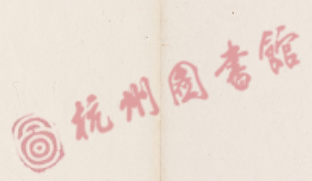 杭州圖書館